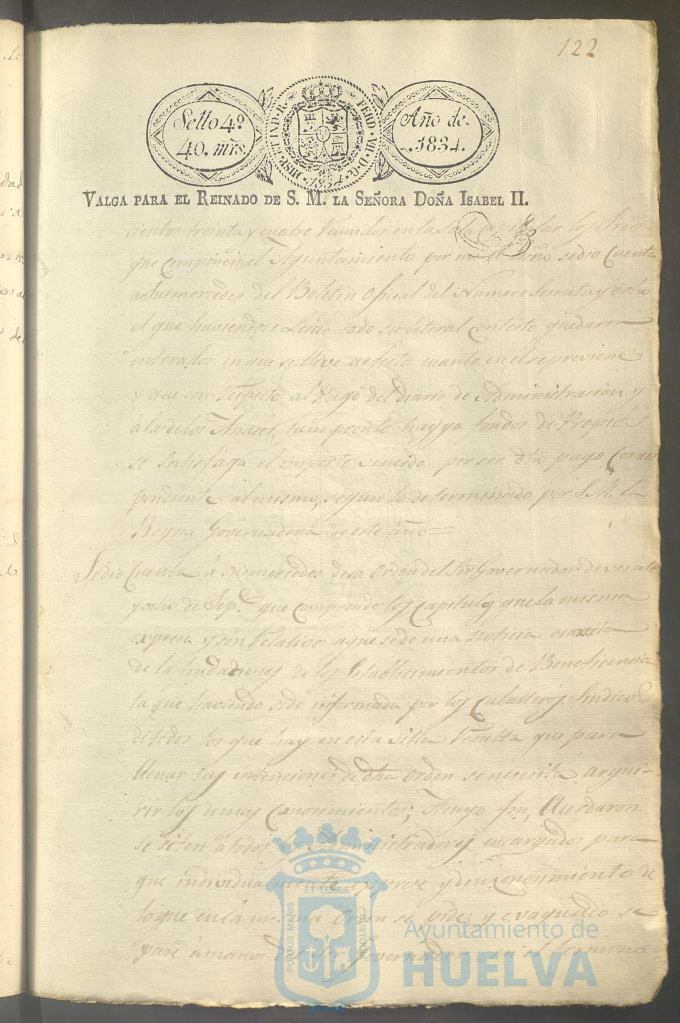 122
Sello 4º
40. mrs.
HISP. ET IND. R. FERD. VII. D. G.
1834
Año de
1834.
VALGA PARA EL REINADO DE S. M. LA SEÑORA DOÑA ISABEL II.
cientos treinta y cuatro reunidos en la Sala los Sres
que componen el Ayuntamiento por mi el sño se dio Cuenta
a Sus mercedes del Boletin Oficial del Numero Sesenta y ocho
el que haviendose Leido todo su literal contesto quedaron
enterados en que se lleve a efecto cuanto en el se previene
y que con respecto al Pago del Diario de Administracion y
á la de los tan pronto haya fondos de Propios
se satisfaga el importe vencido por ser dho pago Corres
pondiente al mismo, segun lo determinado por S. M. la
Reyna Governadora de este año
Se dio Cuenta á sus mercedes de la Orden del Sor Governador de veinte
y ocho de Sepe. que comprende los Capitulos que la misma
expresa y son relativos a que se de una Noticia exacta
de la fundaciones de los Establecimientos de Beneficencia
la que haviendo sido informada por los Caballeros Sindicos
de todos los que hay en esta Villa Resulta que para
llenar las intenciones de dha Orden se necesita adqui-
rir los demas Conocimientos; Acordaron
se citen á todos los Administradores encargados para
que individualmente y den conocimiento de
lo que en la misma Orden se pide y evaquado se
pase á manos del Sor Governador
PORTUS MARIS
ET TERRÆ
CUSTODIA
Ayuntamiento de
HUELVA